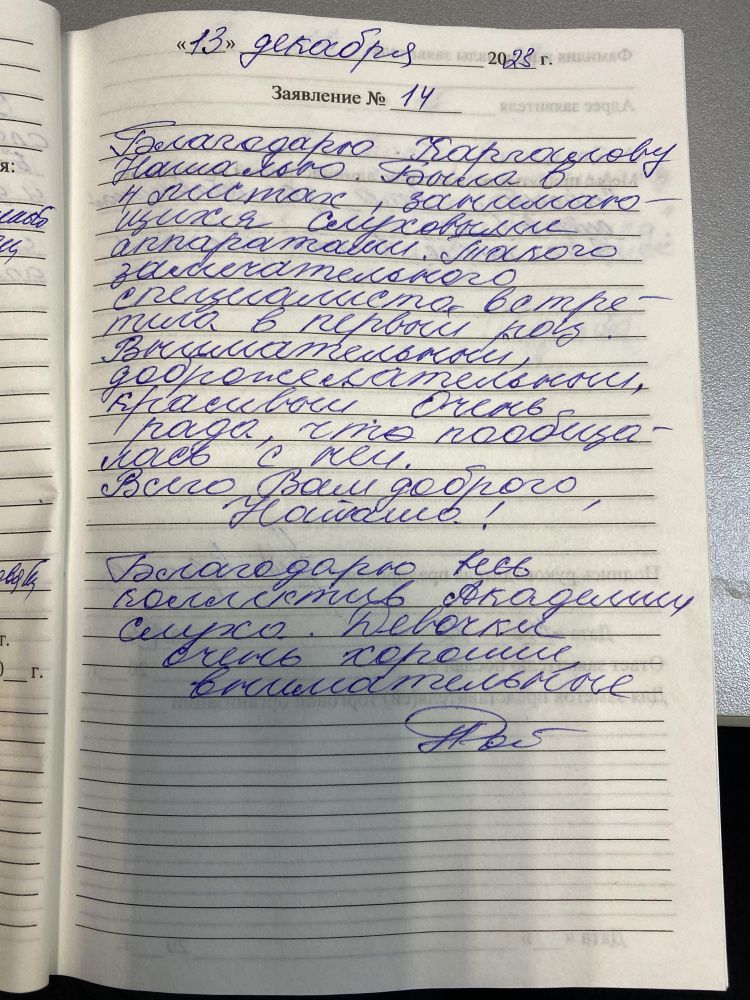 «13» декабря 2023 г.
Заявление № 14
Благодарю Каргаполову
Наталью Была в
4 местах занимаю-
щихся слуховыми
аппаратами. Такого
замечательного
специалиста встре-
тила в первый раз.
Внимательный,
доброжелательный,
красивый Очень
рада, что пообща-
лась с ней.
Всего Вам доброго,
Наташа!
Благодарю весь
коллектив Академии
слуха. Девочки
очень хорошие,
внимательные
я:
г.
0__ г.